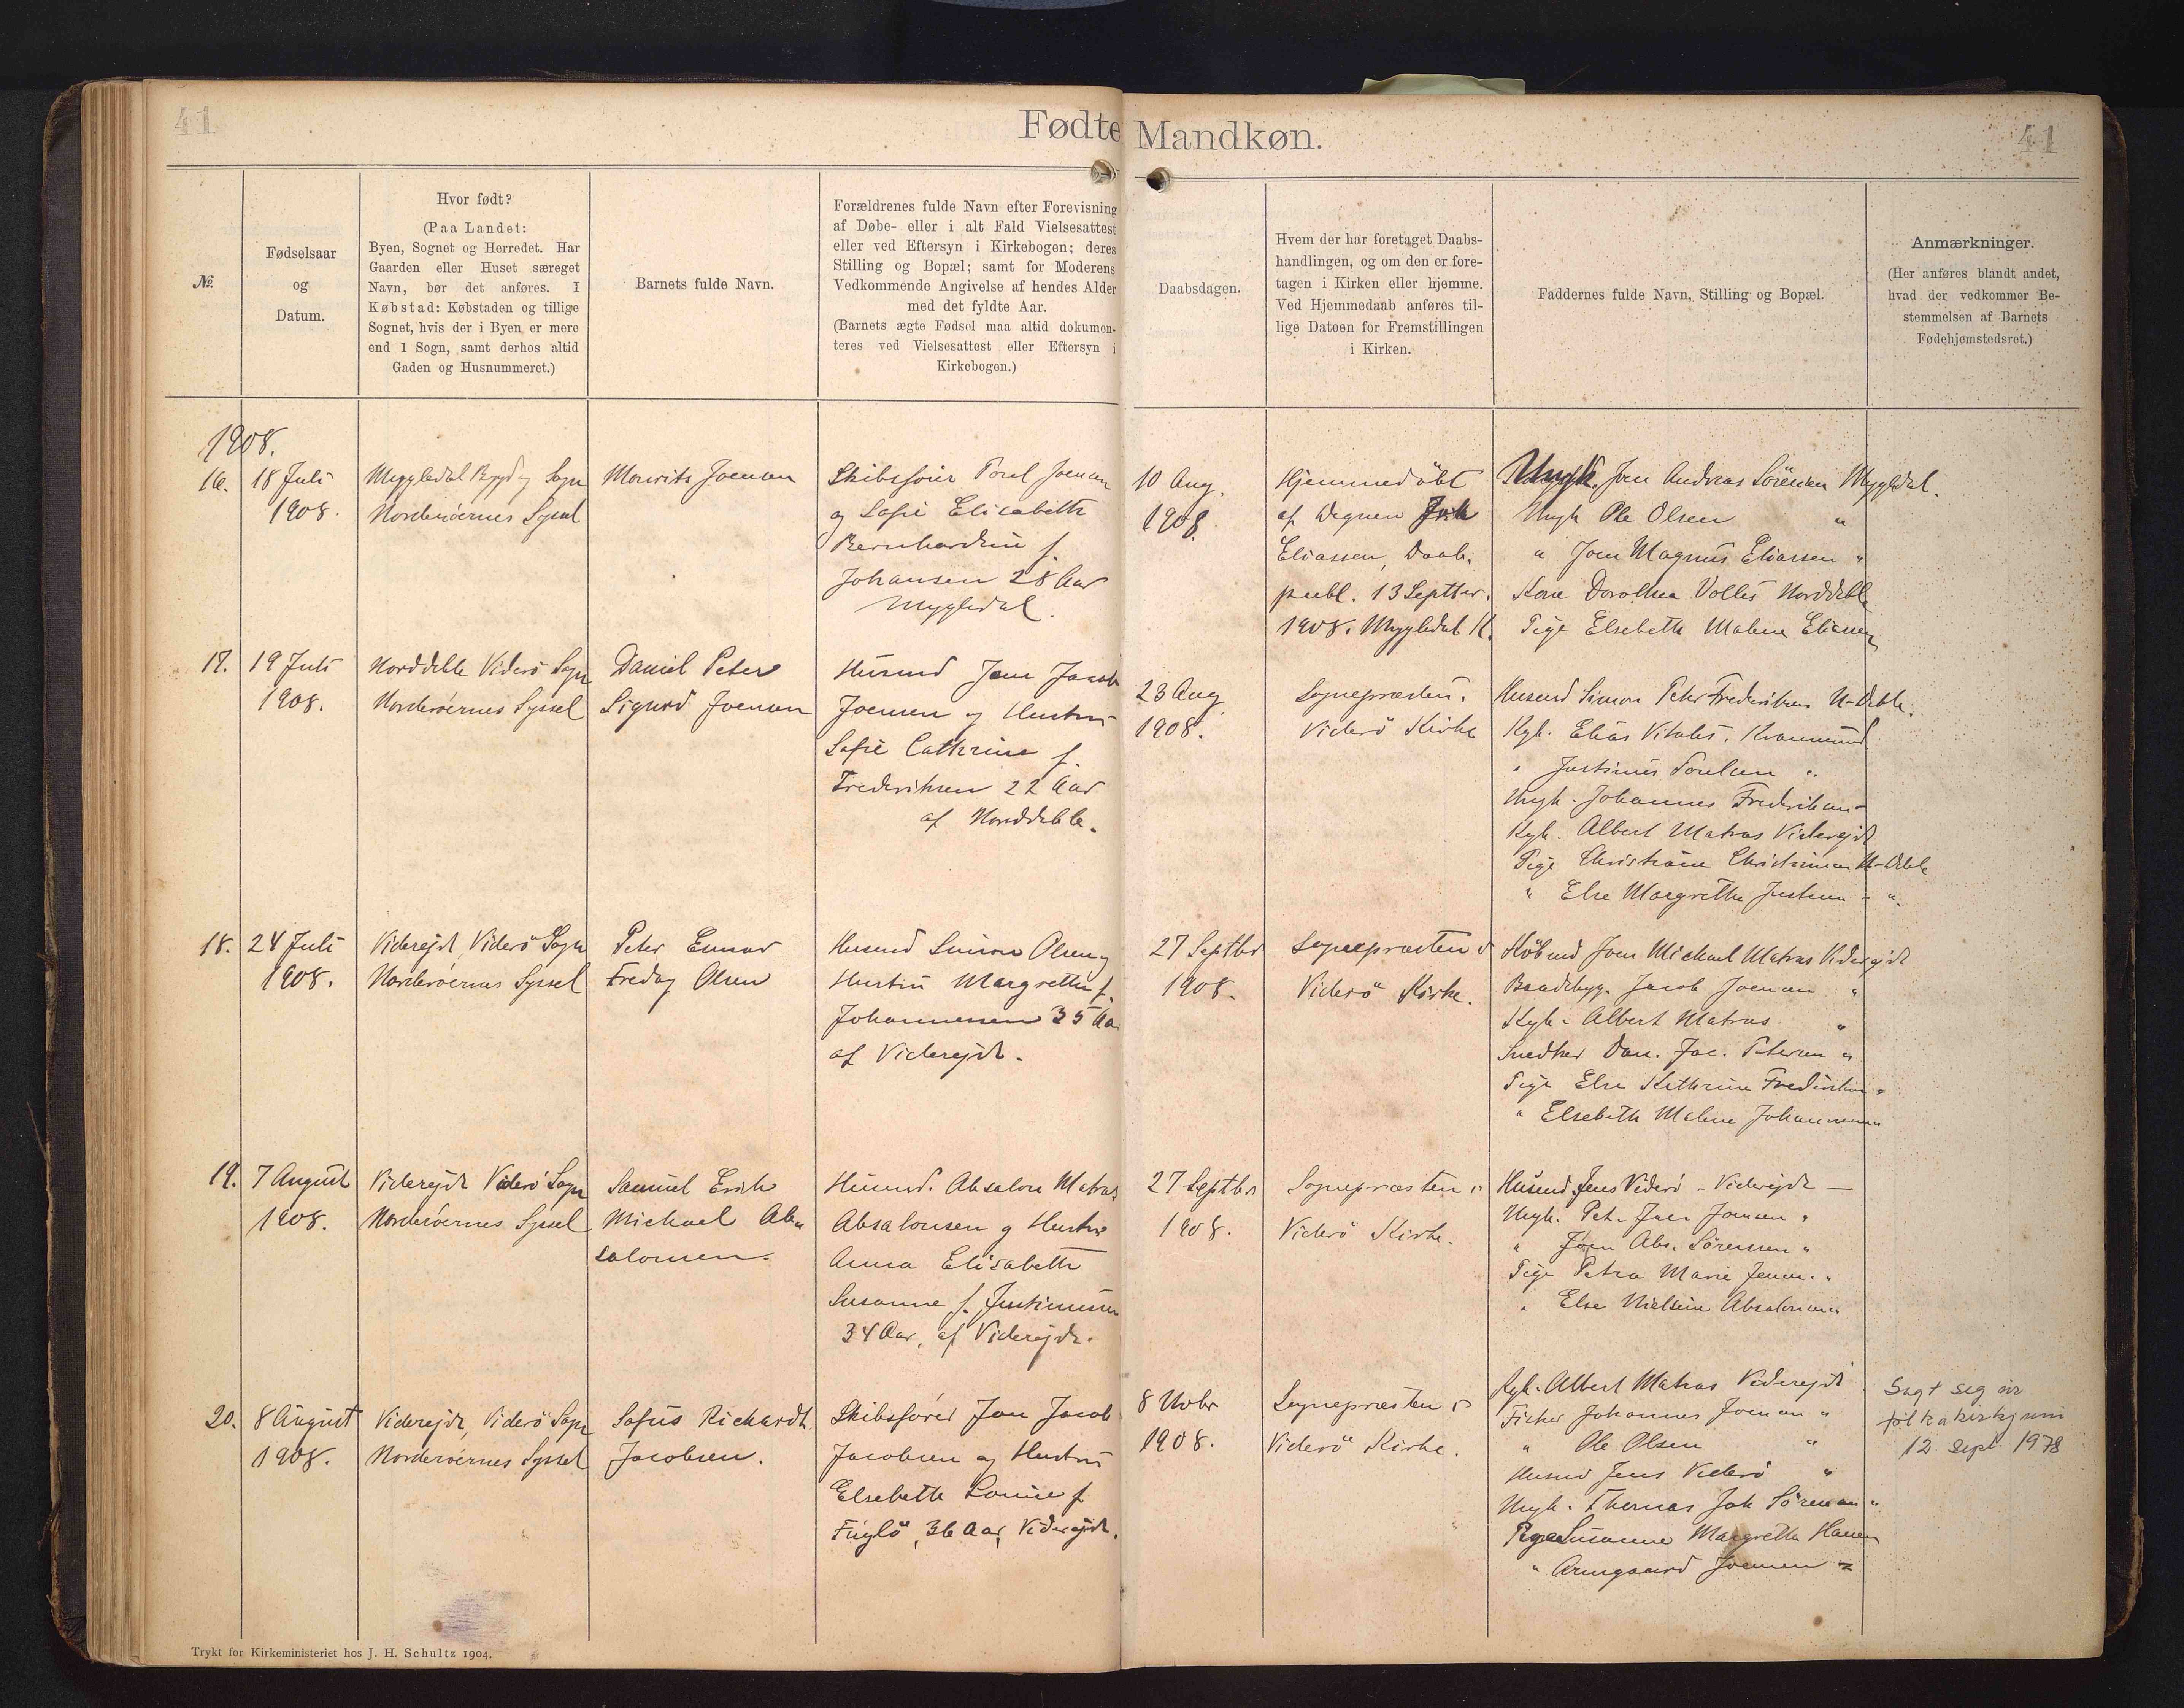 41
Fødte Mandkøn.
41
№.
Fødselsaar
og
Datum.
Hvor født?
(Paa Landet:
Byen, Sognet og Herredet. Har
Gaarden eller Huset særeget
Navn, bør det anføres. I
Købstad: Købstaden og tillige
Sognet, hvis der i Byen er mere
end 1 Sogn, samt derhos altid
Gaden og Husnummeret.)
Barnets fulde Navn.
Forældrenes fulde Navn efter Forevisning
af Døbe- eller i alt Fald Vielsesattest
eller ved Eftersyn i Kirkebogen; deres
Stilling og Bopæl; samt for Moderens
Vedkommende Angivelse af hendes Alder
med det fyldte Aar.
(Barnets ægte Fødsel maa altid dokumen-
teres ved Vielsesattest eller Eftersyn i
Kirkebogen.)
Daabsdagen.
Hvem der har foretaget Daabs-
handlingen, og om den er fore-
tagen i Kirken eller hjemme.
Ved Hjemmedaab anføres til-
lige Datoen for Fremstillingen
i Kirken.
Faddernes fulde Navn, Stilling og Bopæl.
Anmærkninger.
(Her anføres blandt andet,
hvad der vedkommer Be-
stemmelsen af Barnets
Fødehjemstedsret.)
1908.
16.
18 Juli
1908.
Myggledal Bygd og Sogn
Norderöernes Syssel
Mourits Joensen
Skibsförer Poul Joensen
og Sofie Elisabeth
Bernhardine f.
Johansen 28 Aar
Myggledal.
10 Aug.
1908
Hjemmedöbt
af Degnen Joh
Eliassen, Daab.
publ. 13 Septbr.
1908. Myggledal K.
Ungk. Joen Andreas Sörensen Myggledal.
Ungk Ole Olsen "
" Joen Magnus Eliassen "
Kone Dorothea Norddeble
Pige Elsebeth Malene Eliassen
17.
19 Juli
1908.
Norddeble Viderö Sogn
Norderöernes Syssel
Daniel Peter
Sigurd Joensen
Husmd Joen Jacob
Joensen og Hustru
Sofie Cathrine f.
Frederiksen 22 Aar
af Norddeble.
23 Aug
1908.
Sognepræsten.
Viderö Kirke
Husmd Simon Peter Frederiksen N-Deble.
Kgb. Elias
" Justinus Poulsen "
Ungk. Johannes Frederiksen
Kgb. Albert Matras Viderejde
Pige Christiane N-Deble
" Else Margrethe - "
18.
24 Juli
1908.
Viderejde, Viderö Sogn
Norderöernes Syssel
Peter Einar
Fredag Olsen
Husmd Simon Olsen og
Hustru Margrethe f.
Johannesen 35 Aar
af Viderejde.
27 Septbr
1908.
Sognepræsten i
Viderö Kirke.
Köbmd Joen Michael Matras Viderejde
Baadebyg. Jacob Joensen "
Kgb. Albert Matras "
Snedker Dan. Jac. Petersen "
Pige Else Kathrine Frederiksen "
" Elsebeth Malene Johannesen "
19.
7 August
1908.
Viderejde Viderö Sogn
Norderöernes Syssel
Samuel Erik
Michael Ab=
salonsen.
Husmd. Absalon Matras
Absalonsen og Hustru
Anna Elisabeth
Susanne f. Justinussen
34 Aar, af Viderejde.
27 Septbr
1908.
Sognepræsten i
Viderö Kirke.
Husmd Jens Viderö - Viderejde -
Ungk. Pet. Joensen "
" Joen Abs. Sörensen "
Pige Petra Marie "
" Else Nielsine Absalonsen "
20.
8 August
1908.
Viderejde, Viderö Sogn
Norderöernes Syssel
Sofus Richardt
Jacobsen.
Skibsförer Jon Jacob
Jacobsen og Hustru
Elsebeth Louise f.
Fuglö, 36 Aar, Viderejde.
8 Novbr
1908.
Sognepræsten i
Viderö Kirke.
Kgb. Albert Matras Viderejde
Fisker Johannes Joensen "
" Ole Olsen "
Husmd Jens Viderö "
Ungk. Thomas Joh Sörensen "
Pige Susanne Margretha Hansen
" Armgaard Joensen "
Sagt seg úr
fólkakirkjuni
12. sept. 1978
Trykt for Kirkeministeriet hos J. H. Schultz 1904.